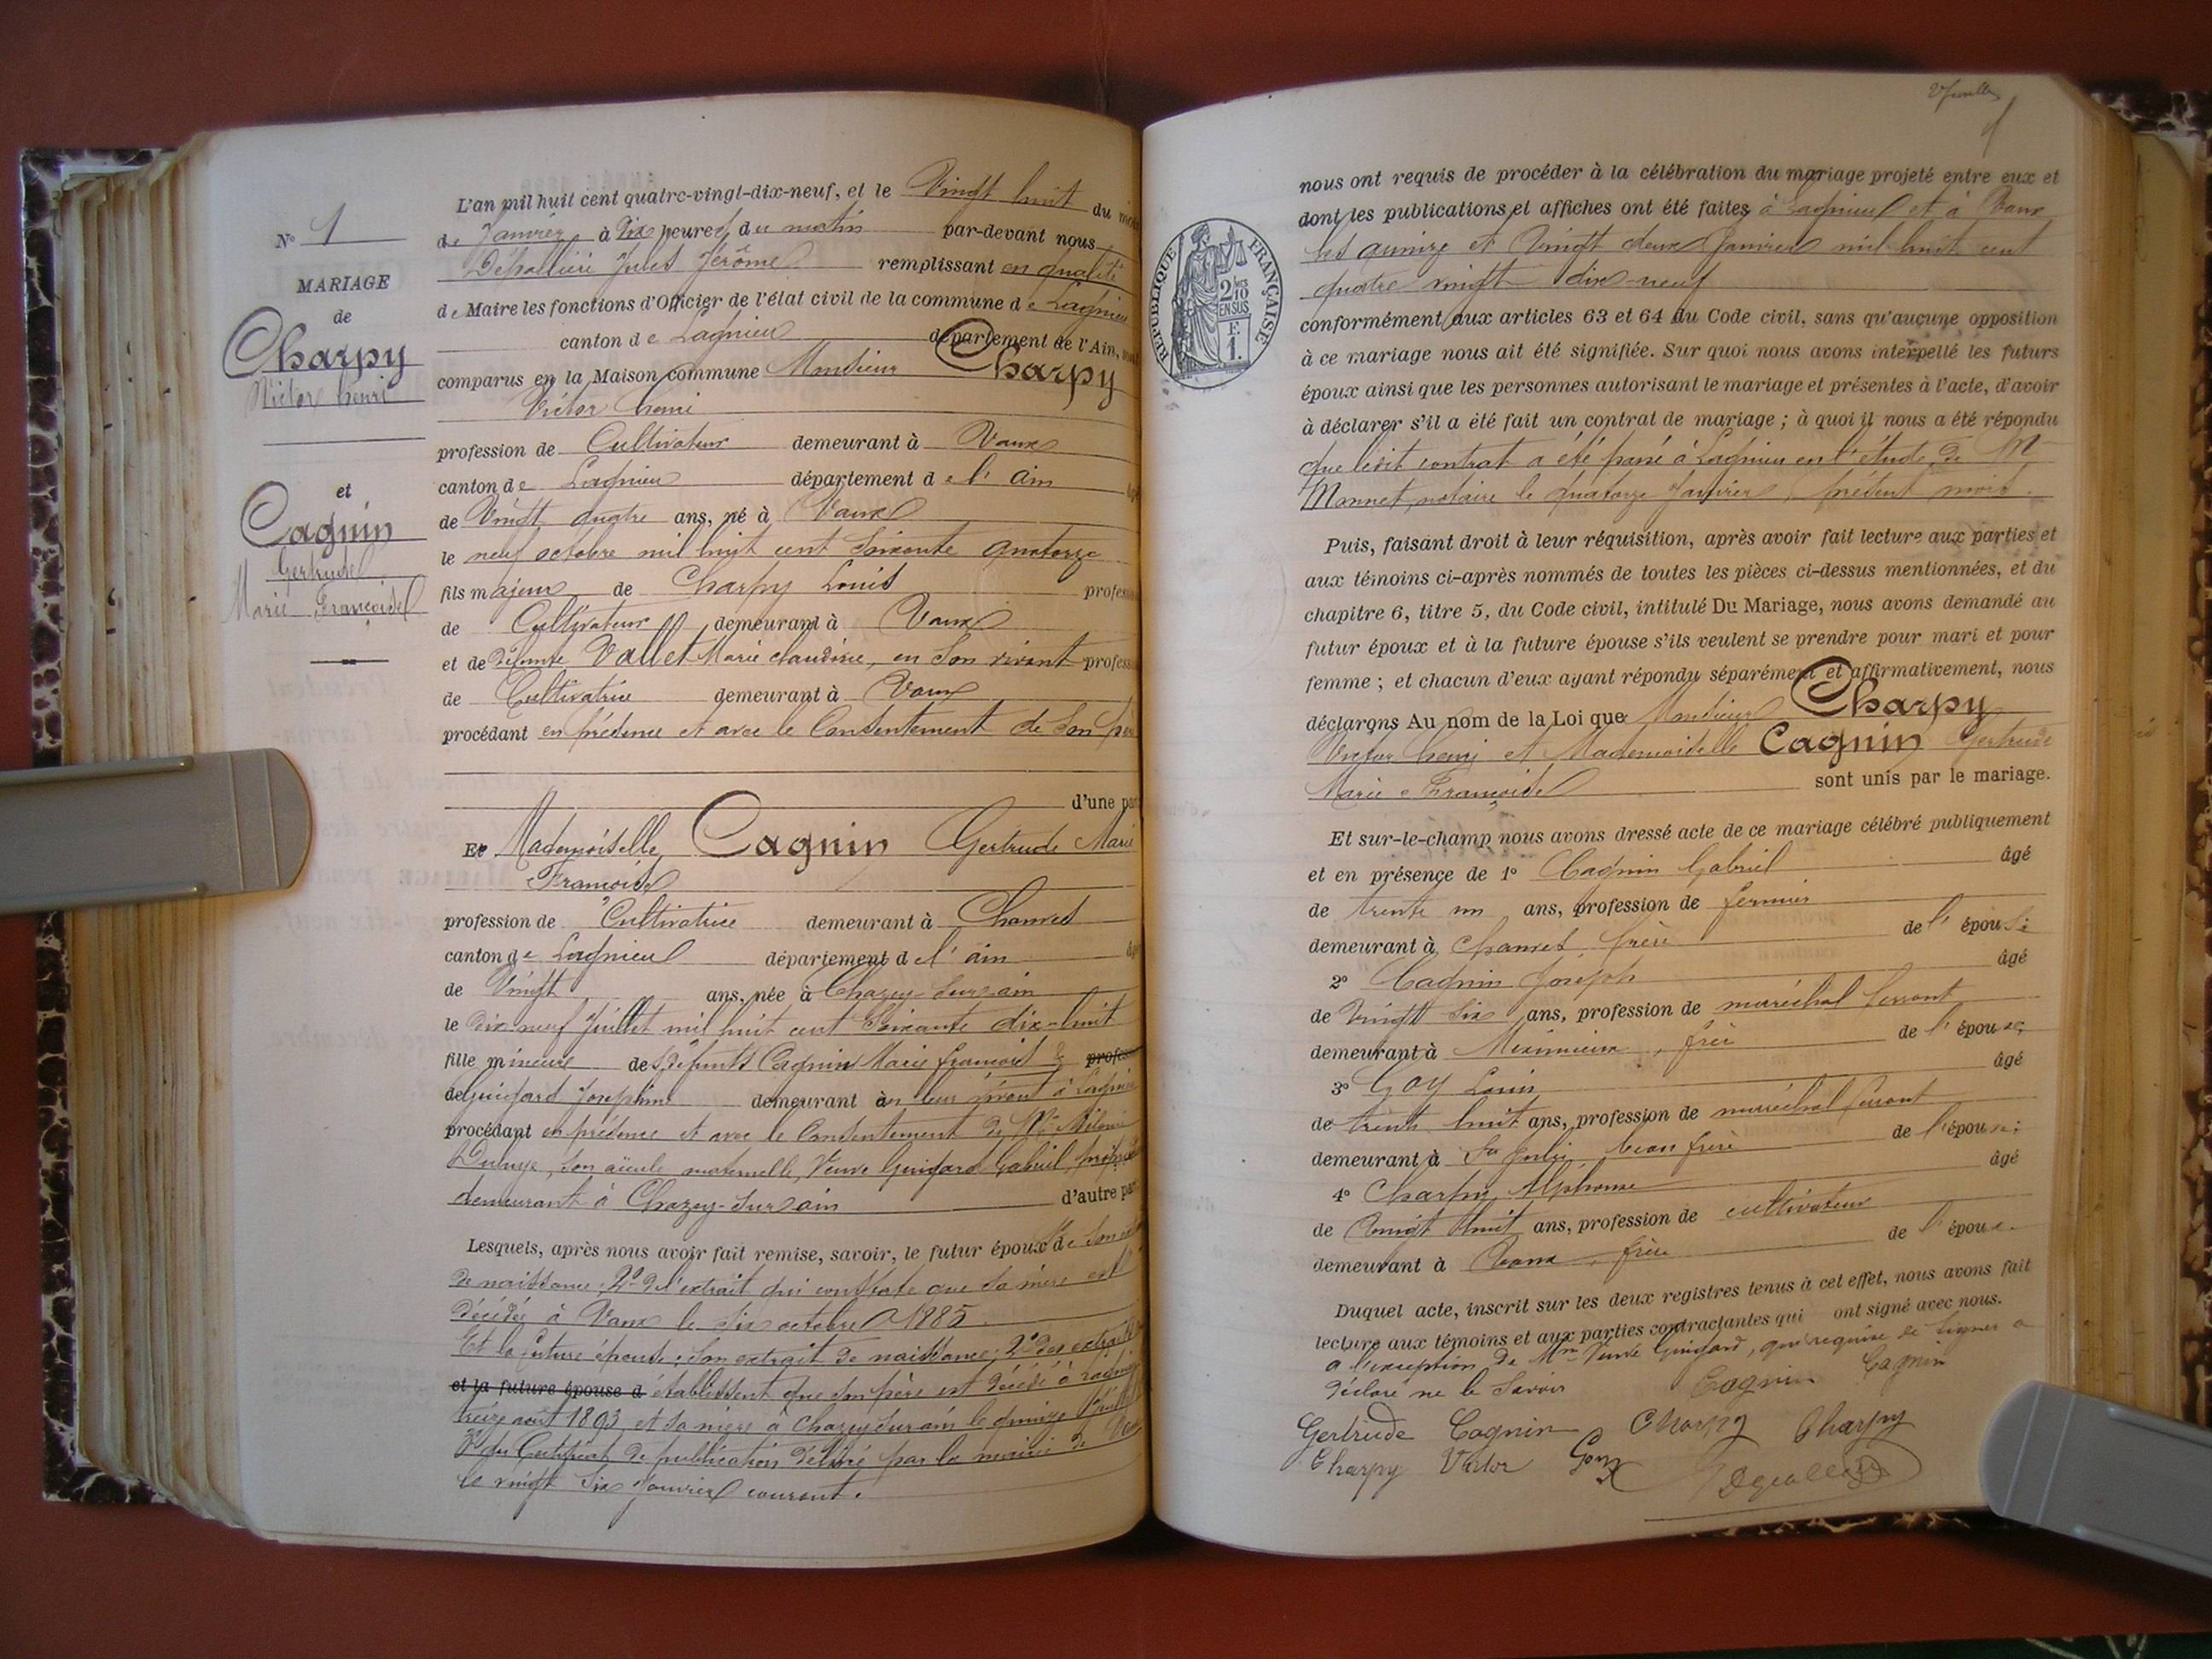 N° 1
MARIAGE
de
Charpy
Victor henri
et
Cagnin
Gertrude
Marie Françoise
L'an mil huit cent quatre-vingt-dix-neuf, et le Vingt huit du mois
de Janvier à Dix heures du matin par-devant nous
Dépallière Jules Jérôme remplissant en qualité
de Maire les fonctions d'Officier de l'état civil de la commune de Lagnieu
canton de Lagnieu département de l'Ain,
comparus en la Maison commune Monsieur Charpy
Victor henri
profession de Cultivateur demeurant à Vaux
canton de Lagnieu département de l'ain
de Vingt quatre ans, né à Vaux
le neuf octobre mil huit cent soixante quatorze
fils majeur de Charpy Louis profession
de Cultivateur demeurant à Vaux
et de défunte Vallet Marie claudine, en son vivant profession
de Cultivatrice demeurant à Vaux
procédant en présence et avec le Consentement de son père
d'une part
Et Mademoiselle Cagnin Gertrude Marie
Françoise
profession de Cultivatrice demeurant à Chanves
canton de Lagnieu département de l'ain
de Vingt ans, née à Chazey-sur-ain
le dix neuf Juillet mil huit cent soixante dix-huit
fille mineure de défunts Cagnin Marie francois & profession
de Guigard Josephine demeurant en leur vivant à Lagnieu
procédant en présence et avec le Consentement de
son aïeule maternelle, Veuve Guigard Gabriel,
demeurant à Chazey-sur-ain d'autre part
Lesquels, après nous avoir fait remise, savoir, le futur époux de son
de naissance; 2° de l'extrait qui constate que sa mère est
décédée à Vaux le six octobre 1885
Et la future épouse: son extrait de naissance; 2° des extraits
et la future épouse d établissent que son père est décédé à Lagnieu
treize août 1893 et sa mère à Chazey sur ain le quinze
3° du Certificat de publication délivré par la mairie de Vaux
le vingt six Janvier courant.
nous ont requis de procéder à la célébration du mariage projeté entre eux et
dont les publications et affiches ont été faites à Lagnieu et à Vaux
les quinze et Vingt deux Janvier mil huit cent
quatre vingt dix-neuf
RÉPUBLIQUE FRANÇAISE
2/10 EN SUS
F.
1.
conformément aux articles 63 et 64 du Code civil, sans qu'aucune opposition
à ce mariage nous ait été signifiée. Sur quoi nous avons interpellé les futurs
époux ainsi que les personnes autorisant le mariage et présentes à l'acte, d'avoir
à déclarer s'il a été fait un contrat de mariage ; à quoi il nous a été répondu
que ledit contrat a été passé à Lagnieu en l'étude de M
Monnet, notaire le quatorze Janvier, présent mois.
Puis, faisant droit à leur réquisition, après avoir fait lecture aux parties et
aux témoins ci-après nommés de toutes les pièces ci-dessus mentionnées, et du
chapitre 6, titre 5, du Code civil, intitulé Du Mariage, nous avons demandé au
futur époux et à la future épouse s'ils veulent se prendre pour mari et pour
femme ; et chacun d'eux ayant répondu séparément et affirmativement, nous
déclarons Au nom de la Loi que Monsieur Charpy
Victor henri et Mademoiselle Cagnin Gertrude
Marie Françoise sont unis par le mariage.
Et sur-le-champ nous avons dressé acte de ce mariage célébré publiquement
et en présence de 1° Cagnin Gabriel âgé
de trente un ans, profession de fermier
demeurant à Chanves, frère de l'épouse
2° Cagnin Joseph âgé
de Vingt six ans, profession de maréchal ferrant
demeurant à Meximieux, frère de l'épouse;
3° Goy Louis âgé
de trente huit ans, profession de maréchal ferrant
demeurant à St Sorlin, beau frère de l'épouse;
4° Charpy Alphonse âgé
de Vingt huit ans, profession de cultivateur
demeurant à Vaux, frère de l'époux.
Duquel acte, inscrit sur les deux registres tenus à cet effet, nous avons fait
lecture aux témoins et aux parties contractantes qui ont signé avec nous.
à l'exception de Mme Veuve Guigard, qui requise de signer a
déclaré ne le savoir Cagnin Cagnin
Gertrude Cagnin Charpy Charpy
Charpy Victor Goy